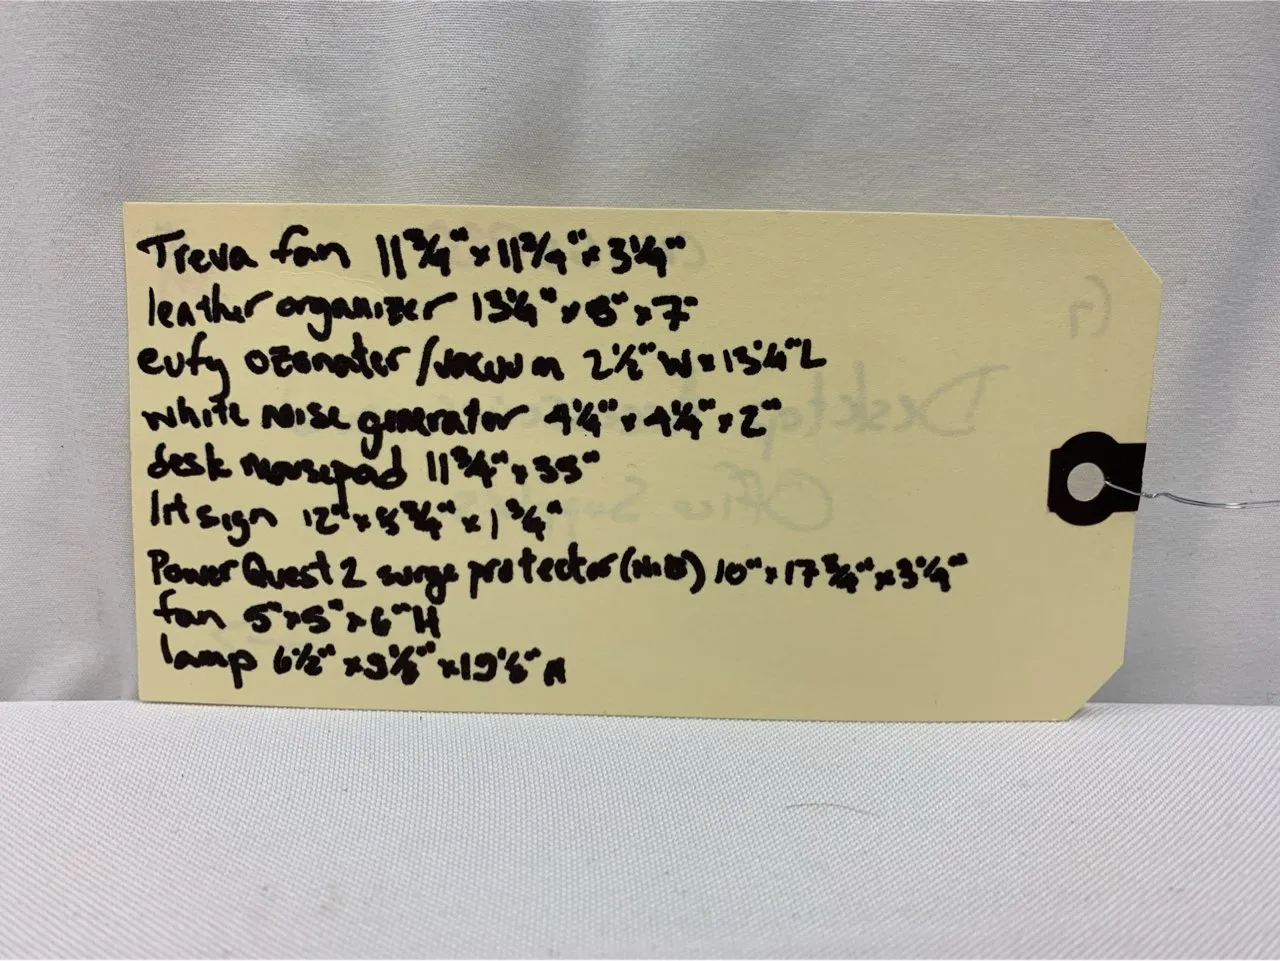 Treva fan 11 3/4" x 11 3/4" x 3 1/4"
leather organizer 13 1/4" x 8" x 7"
eufy ozonater/vacuum 2 1/2" W x 13 1/4" L
white noise generator 4 1/4" x 4 1/4" x 2"
desk mousepad 11 3/4" x 35"
lit sign 12" x 5 3/4" x 1 3/4"
Power Quest 2 surge protector (NIB) 10" x 17 3/4" x 3 1/4"
fan 5" x 5" x 6" H
lamp 6 1/2" x 9 1/2" x 19 1/2" H